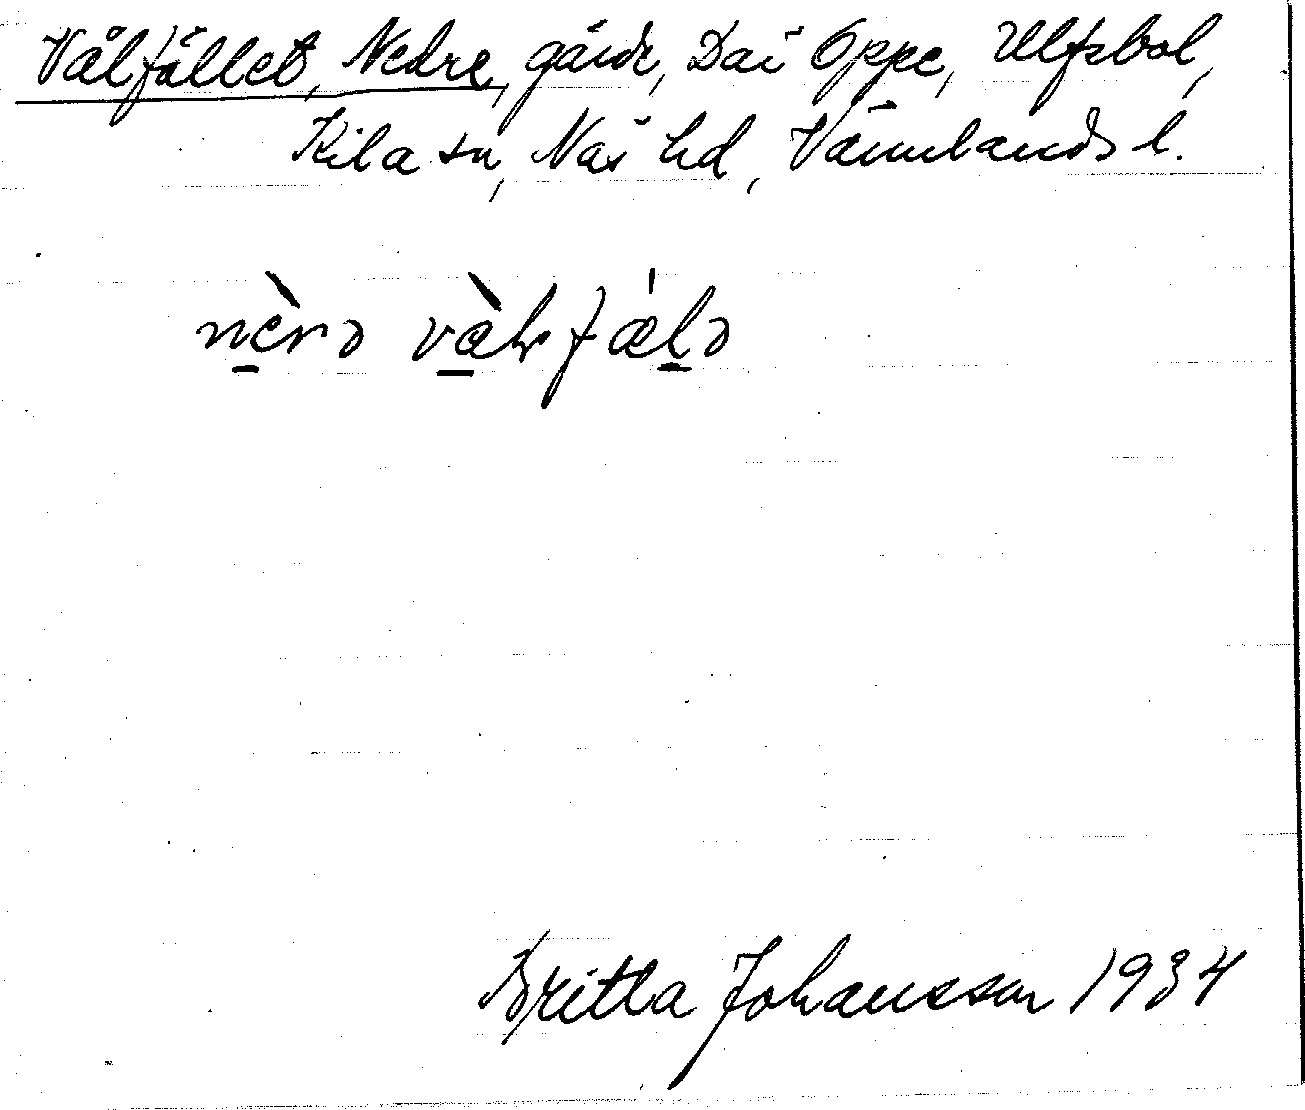 Välfället, Nedre, gård, Dais Oppe, Ulfsbol,
Kila sn, Näs hd, Värmlands l.
nèrə vàlfælə
Britta Johansson 1934